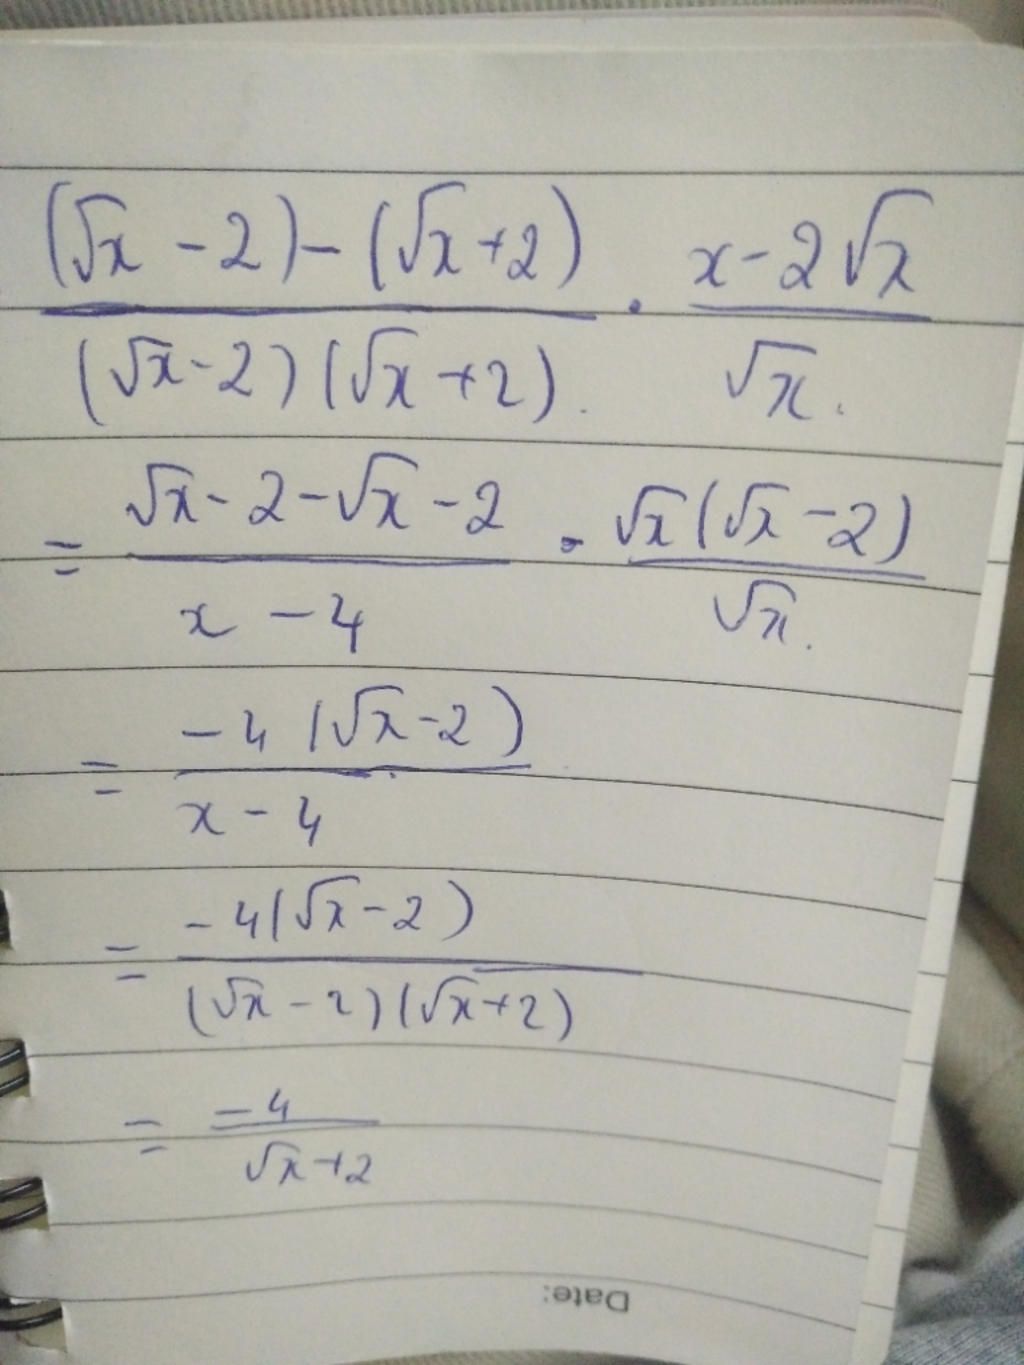 ((√x - 2) - (√x + 2))/((√x - 2)(√x + 2)) . (x - 2√x)/√x
= (√x - 2 - √x - 2)/(x - 4) . (√x(√x - 2))/√x
= (-4(√x - 2))/(x - 4)
= (-4(√x - 2))/((√x - 2)(√x + 2))
= -4/(√x + 2)
Date: